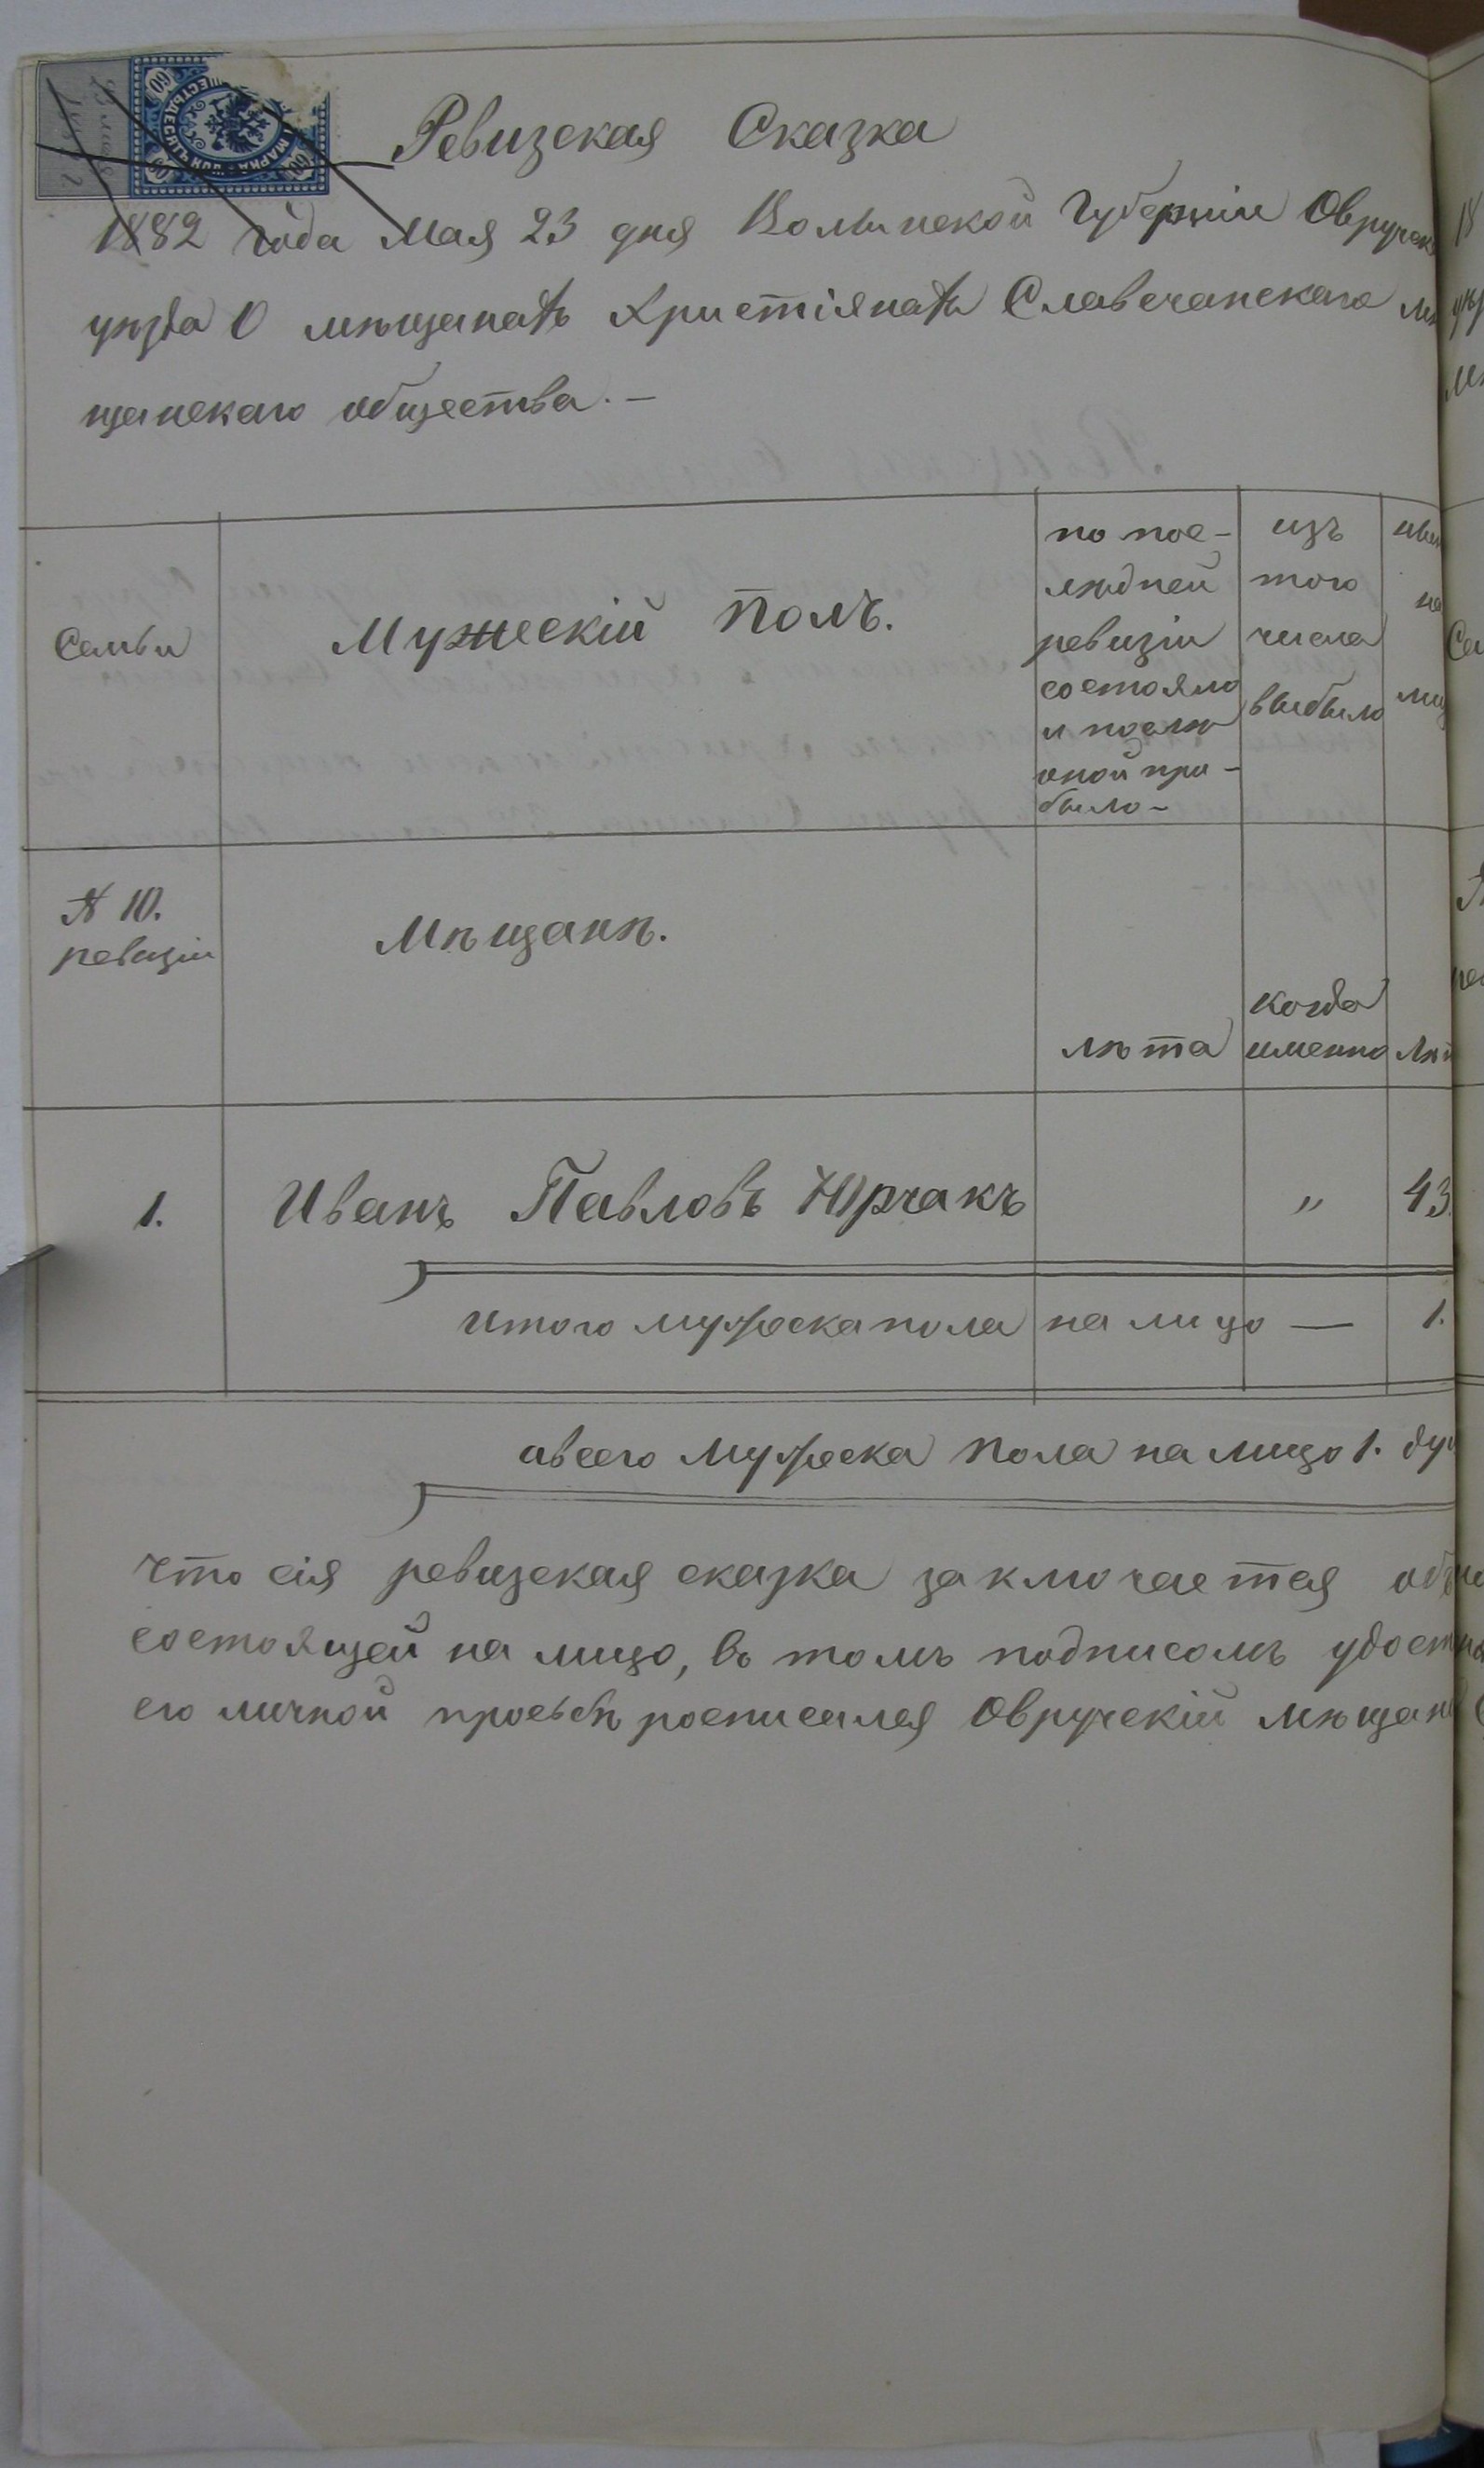 Ревизская Сказка
1882 года Мая 23 дня Волынской Губерніи Овручск
уѣзда О мѣщанахъ Христіянахъ Славечанскаго мѣ
щанскаго общества. —
Семьи
Мужескій Полъ.
по пос-
лѣдней
ревизіи
состояло
и послѣ
оной при-
было-
изъ
того
числа
выбыло
№ 10.
ревизіи
Мѣщанѣ.
лѣта
когда
именно
лѣт
1.
Иванъ Павловъ Юрчакъ
"
43.
итого мужеска пола на лицо — 1.
а всего Мужеска Пола на лицо 1. ду
Что сія ревизская сказка заключается
состоящей на лицо, въ томъ подписомъ удост
его личной просьбѣ росписался Овручскій мѣщан